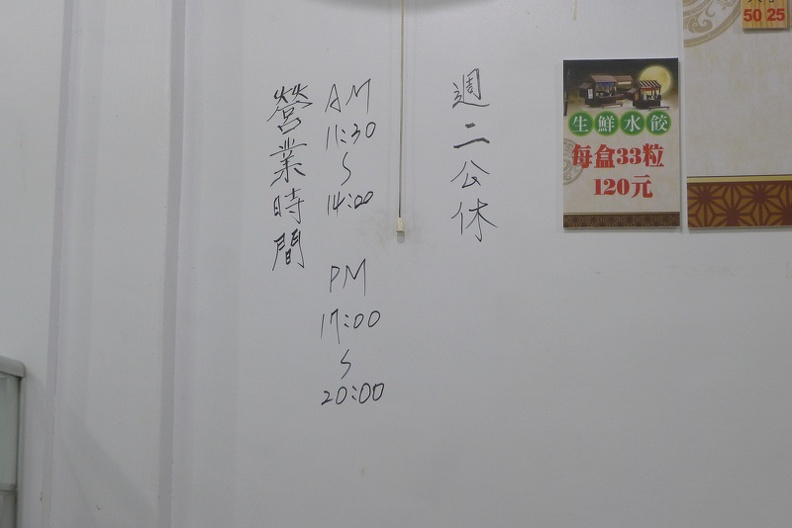 營業時間
AM
11:30
~
14:00
PM
17:00
~
20:00
週二公休
生鮮水餃
每盒33粒
120元
50 25